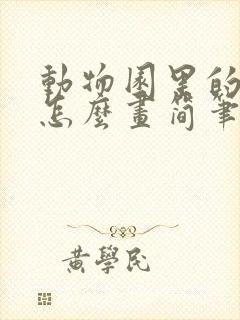 動物園里的
怎麼畫简筆
黃學民